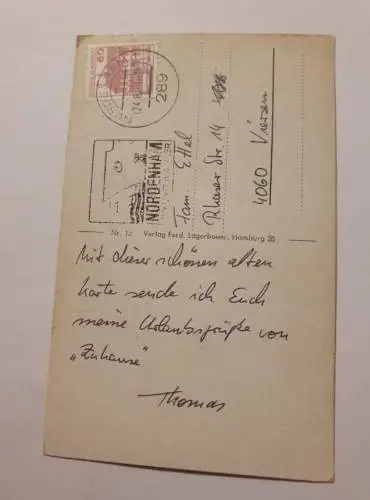 60
289
NORDENHAM
Fam. Ettel
Rheser Str. 14
4060 Viersen
Nr. 12 Verlag Ferd. Lagerbauer, Hamburg 20
Mit dieser schönen alten
Karte sende ich Euch
meine Urlaubsgrüße von
„Zuhause“
Thomas